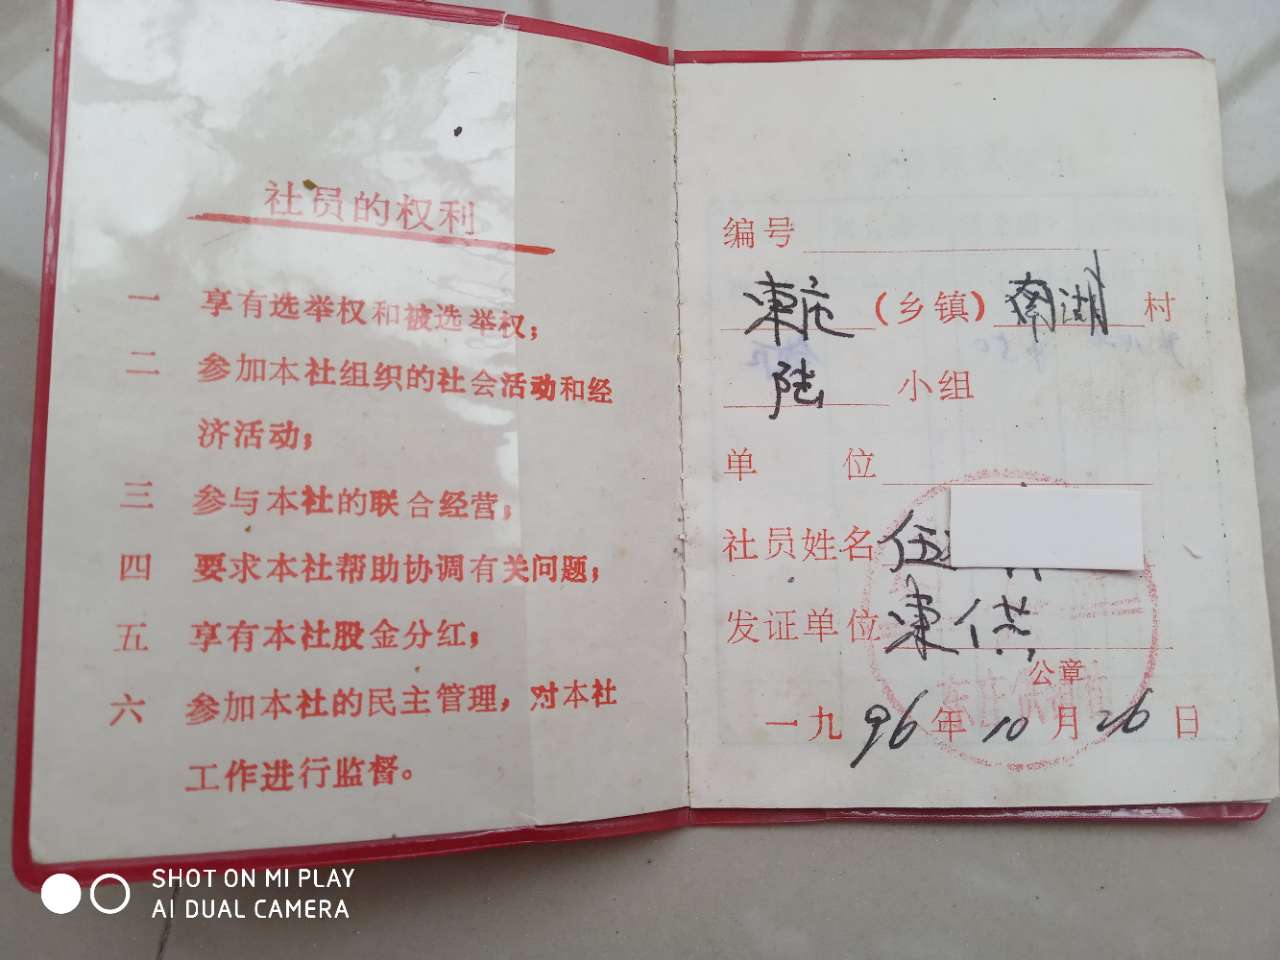 社员的权利
一 享有选举权和被选举权;
二 参加本社组织的社会活动和经
济活动;
三 参与本社的联合经营;
四 要求本社帮助协调有关问题;
五 享有本社股金分红;
六 参加本社的民主管理,对本社
工作进行监督。
编号
東庄(乡镇)南湖村
陆小组
单 位
社员姓名 伍
发证单位 東供
公章
一九96年10月26日
SHOT ON MI PLAY
AI DUAL CAMERA